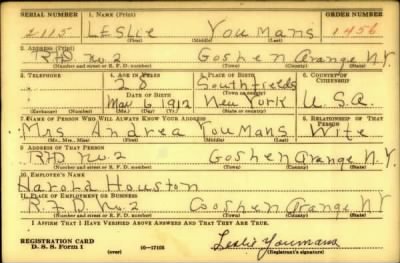 SERIAL NUMBER 1. NAME (Print) ORDER NUMBER
2115 LESLIE YouMans 1456
(First) (Middle) (Last)
2. ADDRESS (Print)
RFD No. 2 Goshen Orange N.Y.
(Number and street or R. F. D. number) (Town) (County) (State)
3. TELEPHONE 4. AGE IN YEARS 5. PLACE OF BIRTH 6. COUNTRY OF CITIZENSHIP
28 Southfields
DATE OF BIRTH (Town or county)
May 6, 1912 New York U.S.A.
(Exchange) (Number) (Mo.) (Day) (Yr.) (State or country)
7. NAME OF PERSON WHO WILL ALWAYS KNOW YOUR ADDRESS 8. RELATIONSHIP OF THAT PERSON
Mrs. Andrea YouMans Wife
(Mr., Mrs., Miss) (First) (Middle) (Last)
9. ADDRESS OF THAT PERSON
RFD No. 2 Goshen Orange N.Y.
(Number and street or R. F. D. number) (Town) (County) (State)
10. EMPLOYER'S NAME
Harold Houston
11. PLACE OF EMPLOYMENT OR BUSINESS
R.F.D. No. 2 Goshen Orange N.Y.
(Number and street or R. F. D. number) (Town) (County) (State)
I AFFIRM THAT I HAVE VERIFIED ABOVE ANSWERS AND THAT THEY ARE TRUE.
REGISTRATION CARD
D. S. S. FORM 1 (over) 16-17105 Leslie Youmans
(Registrant's signature)